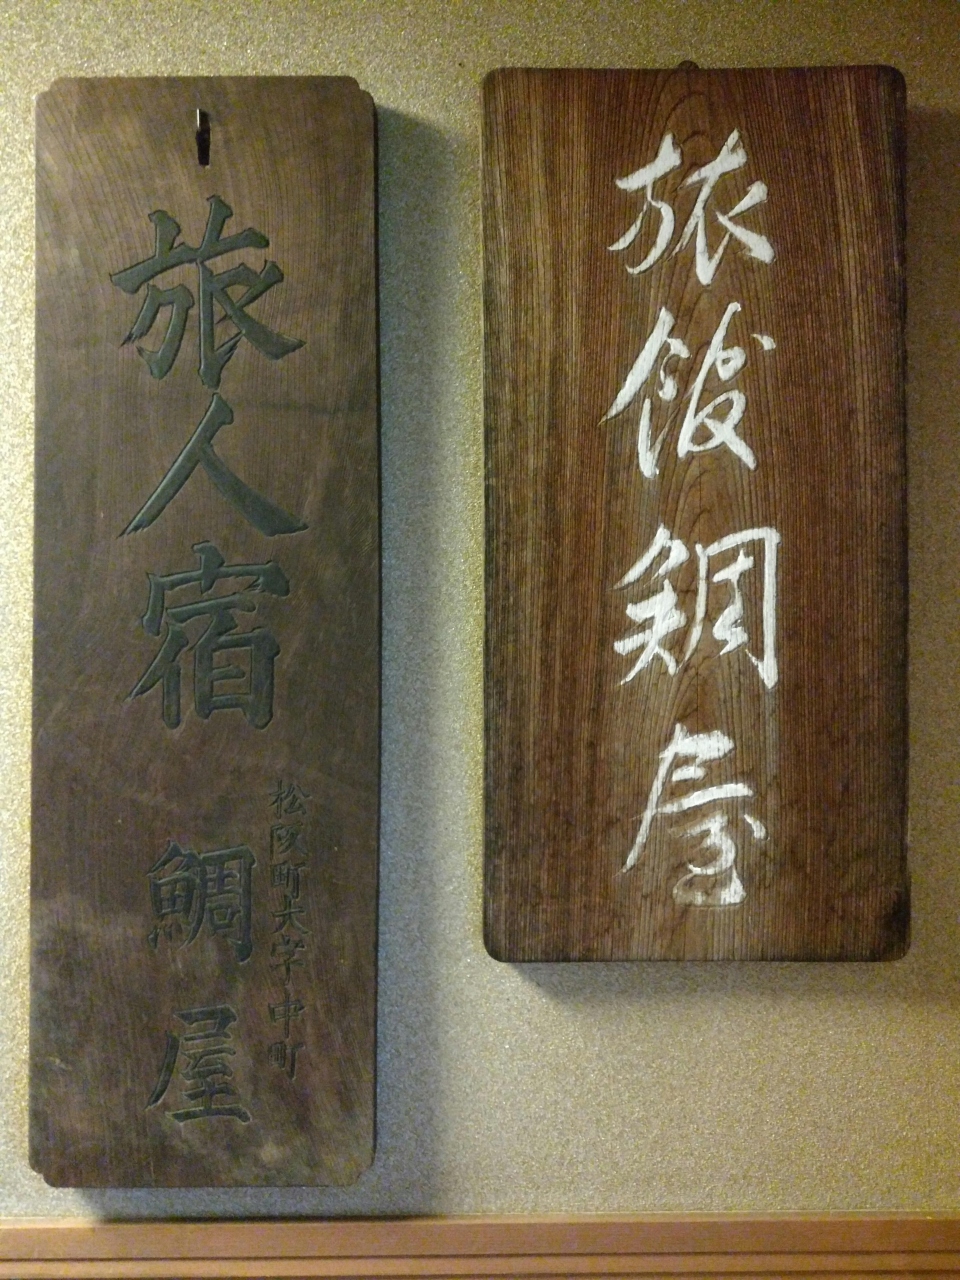 旅館鯛屋
松阪町大字中町
旅人宿 鯛屋